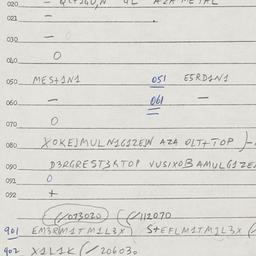 020 –
021 –
030 –
040 O
050 MES+1N1 051 E5RD1N1
060 – 061 –
070 O
080 XOKEJMULN1G1ZEJN AZA OLT+TOP
090 D3RGREST3RTOP VUSIXOB AMULG1ZE
091 O
092 +
(/073020) (/112070
901 EM3RM1TM1L3X) S+EFLM1TM1L3X (
902 X1L1K (/20603.